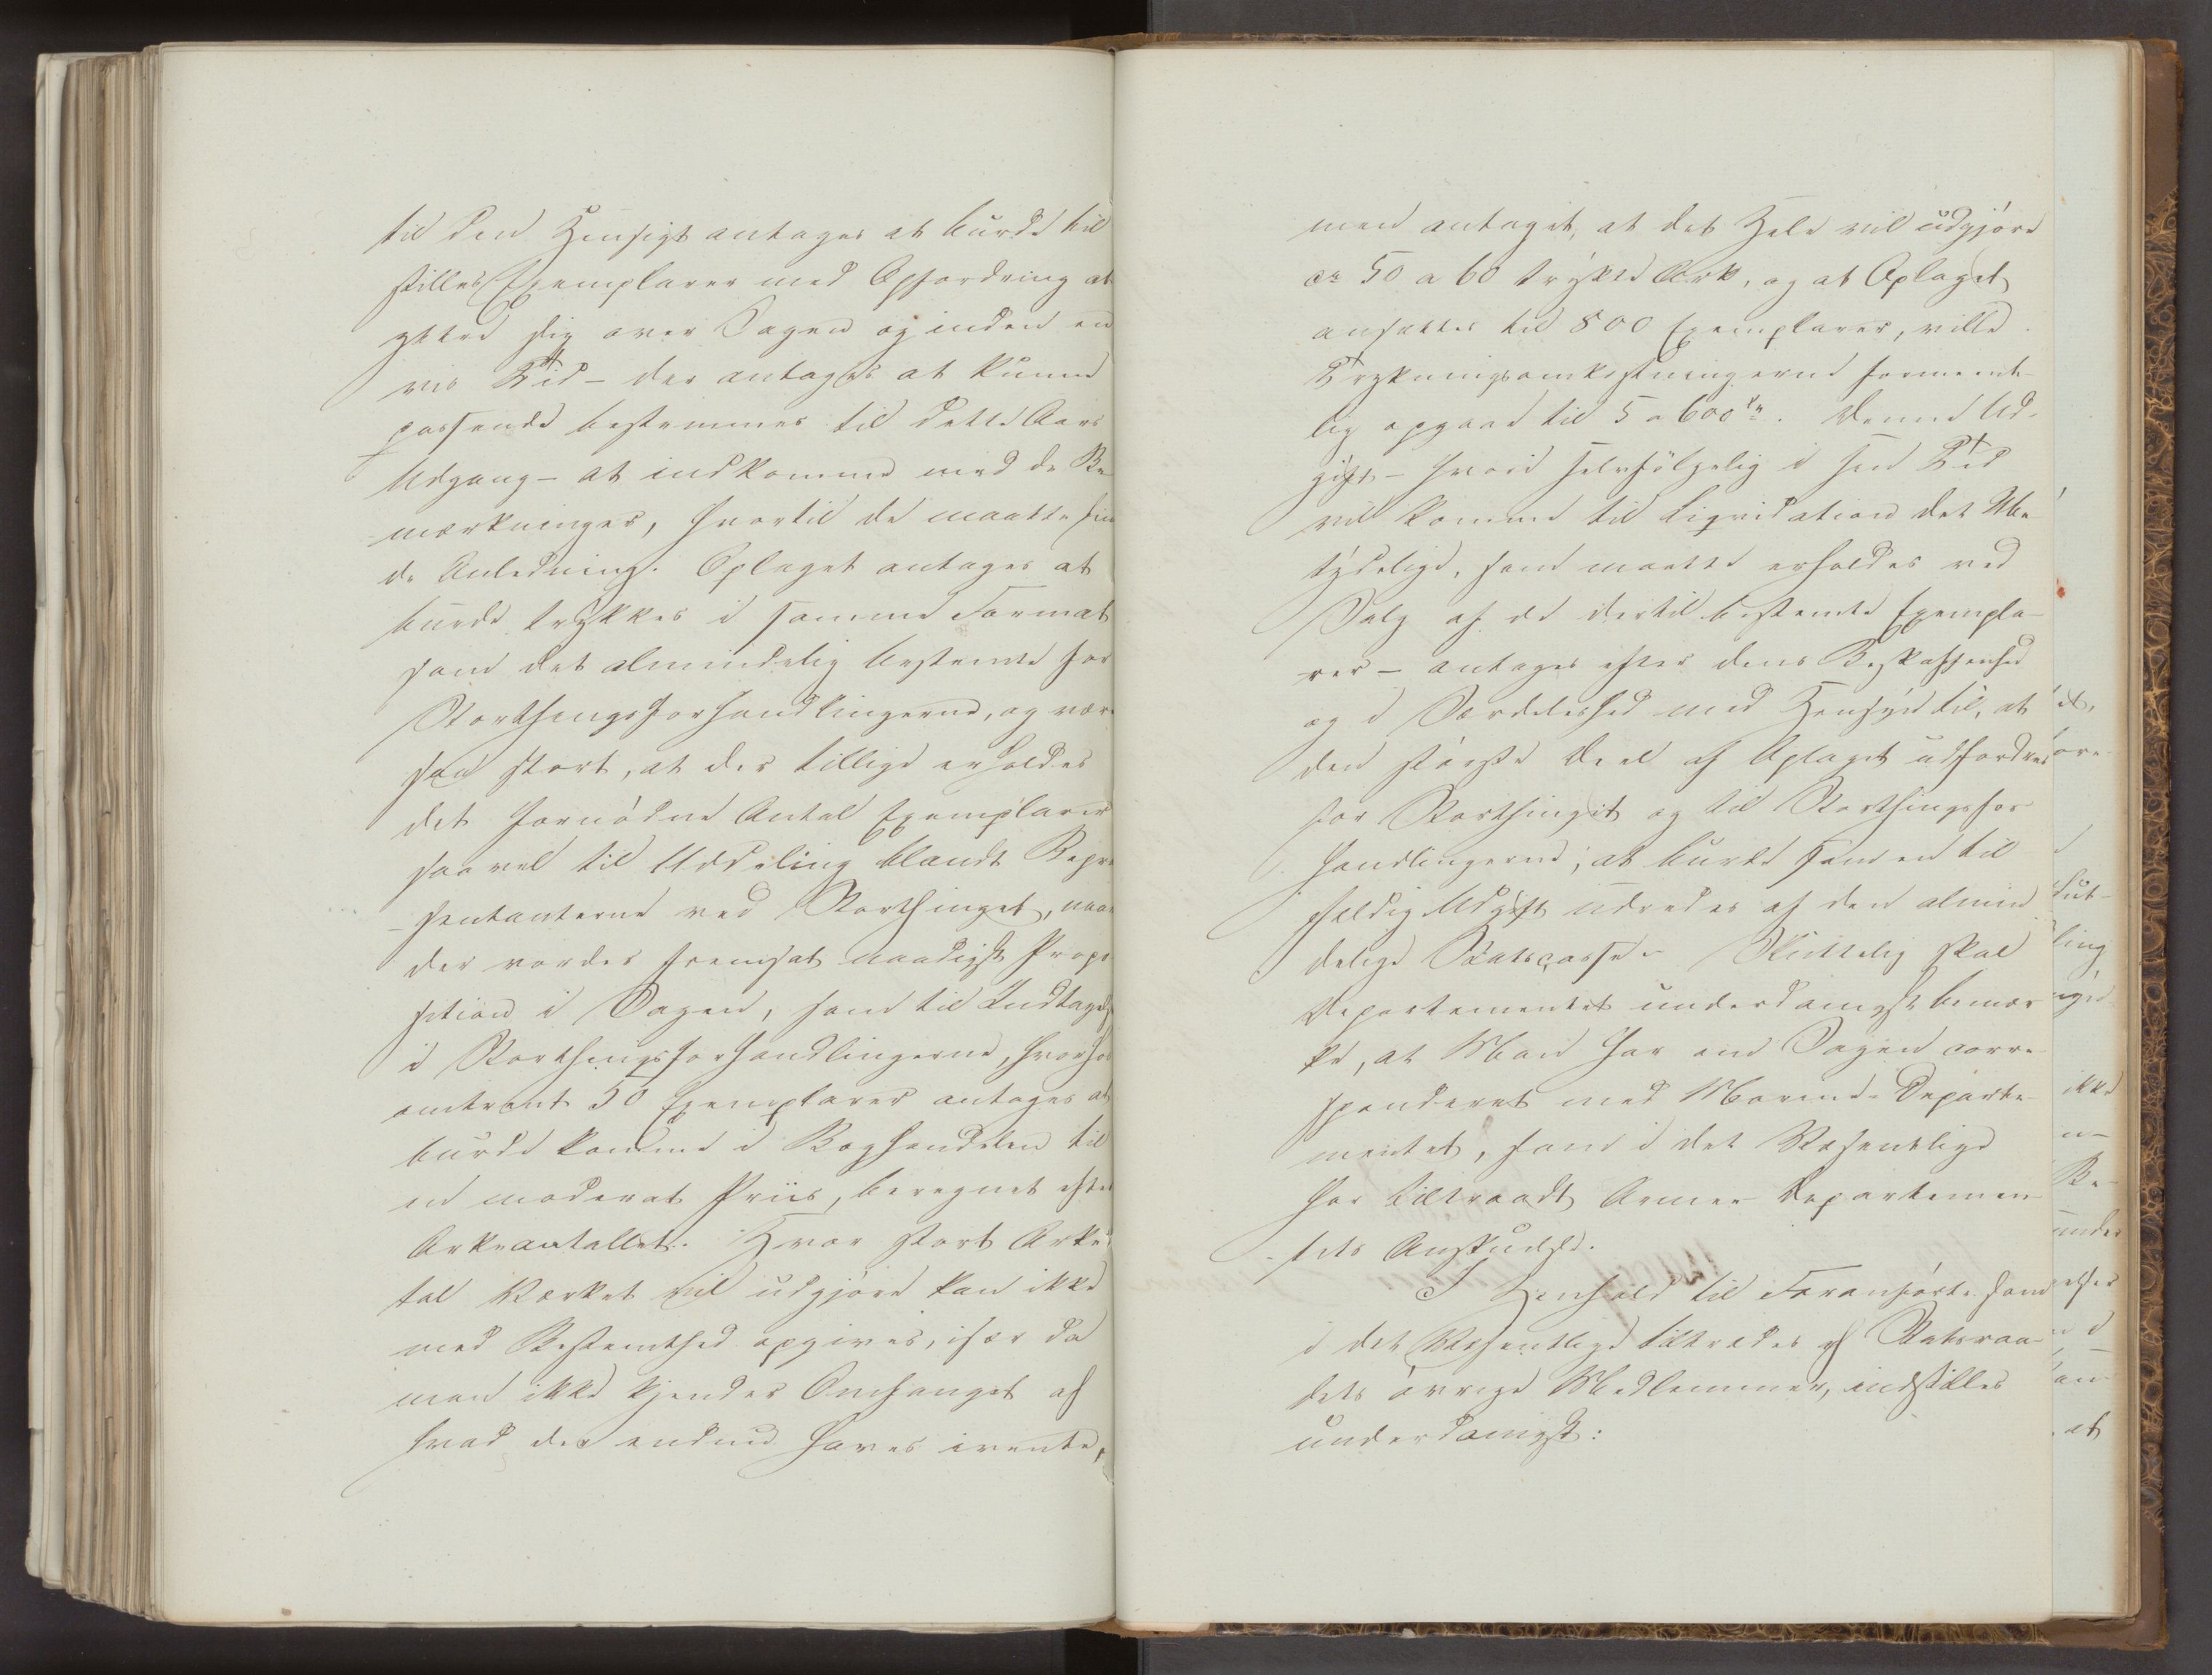 til den Hensigt antages at burde til
stilles Exemplarer med Opfordring at
yttre sig over Sagen og inden en
vis Tid – der antages at kunne
passende bestemmes til dette Aars
Udgang – at indkomme med de Be
mærkninger, hvortil de maatte fin
de Anledning. Oplaget antages at
burde trykkes i samme Format
som det almindelig bestemte for
Storthingsforhandlingerne, og være
saa stort, at der tillige erholdes
det fornødne Antal Exemplarer
saavel til Uddeling blandt Repræ
sentanterne ved Storthinget, naar
der vorder fremsat naadigst Propo
sition i Sagen, som til Indtagelse
i Storthingsforhandlingerne, hvorhos
omtrent 50 Exemplarer antages at
burde komme i Boghandelen til
en moderat Priis, beregnet efter
Arkeantallet. Hvor stort Arke
tal Værket vil udgjøre kan ikke
med Bestemthed opgives, især da
man ikke kjender Omfanget af
hvad der endnu haves ivente,
men antaget, at det Hele vil udgjøre
ca 50 a 60 trykte Ark, og at Oplaget
ansættes til 800 Exemplarer, ville
Trykningsomkostningerne formeent-
lig opgaae til 5 a 600 Spd. Denne Ud-
gift – hvori selvfølgelig i sin Tid
vil komme til Liqvidation det Ube
tydelige, som maatte erholdes ved
Salg af de dertil bestemte Exempla-
rer – antages efter dens Beskaffenhed
og i Særdeleshed med Hensyn til, at
den største Deel af Oplaget udfordres
for Storthinget og til Storthingsfor
handlingerne, at burde som en til
fældig Udgift udredes af den almin
delige Statscasse. Sluttelig skal
Departementet underdanigst bemær
ke, at Man har om Sagen corre-
sponderet med Marine-Departe-
mentet, som i det Væsentlige
har tiltraadt Armee-Departemen-
tets Anskuelse.
I Henhold til Foranførte som
i det Væsentlige tiltrædes af Statsraa-
dets øvrige Medlemmer, indstilles
underdanigst: